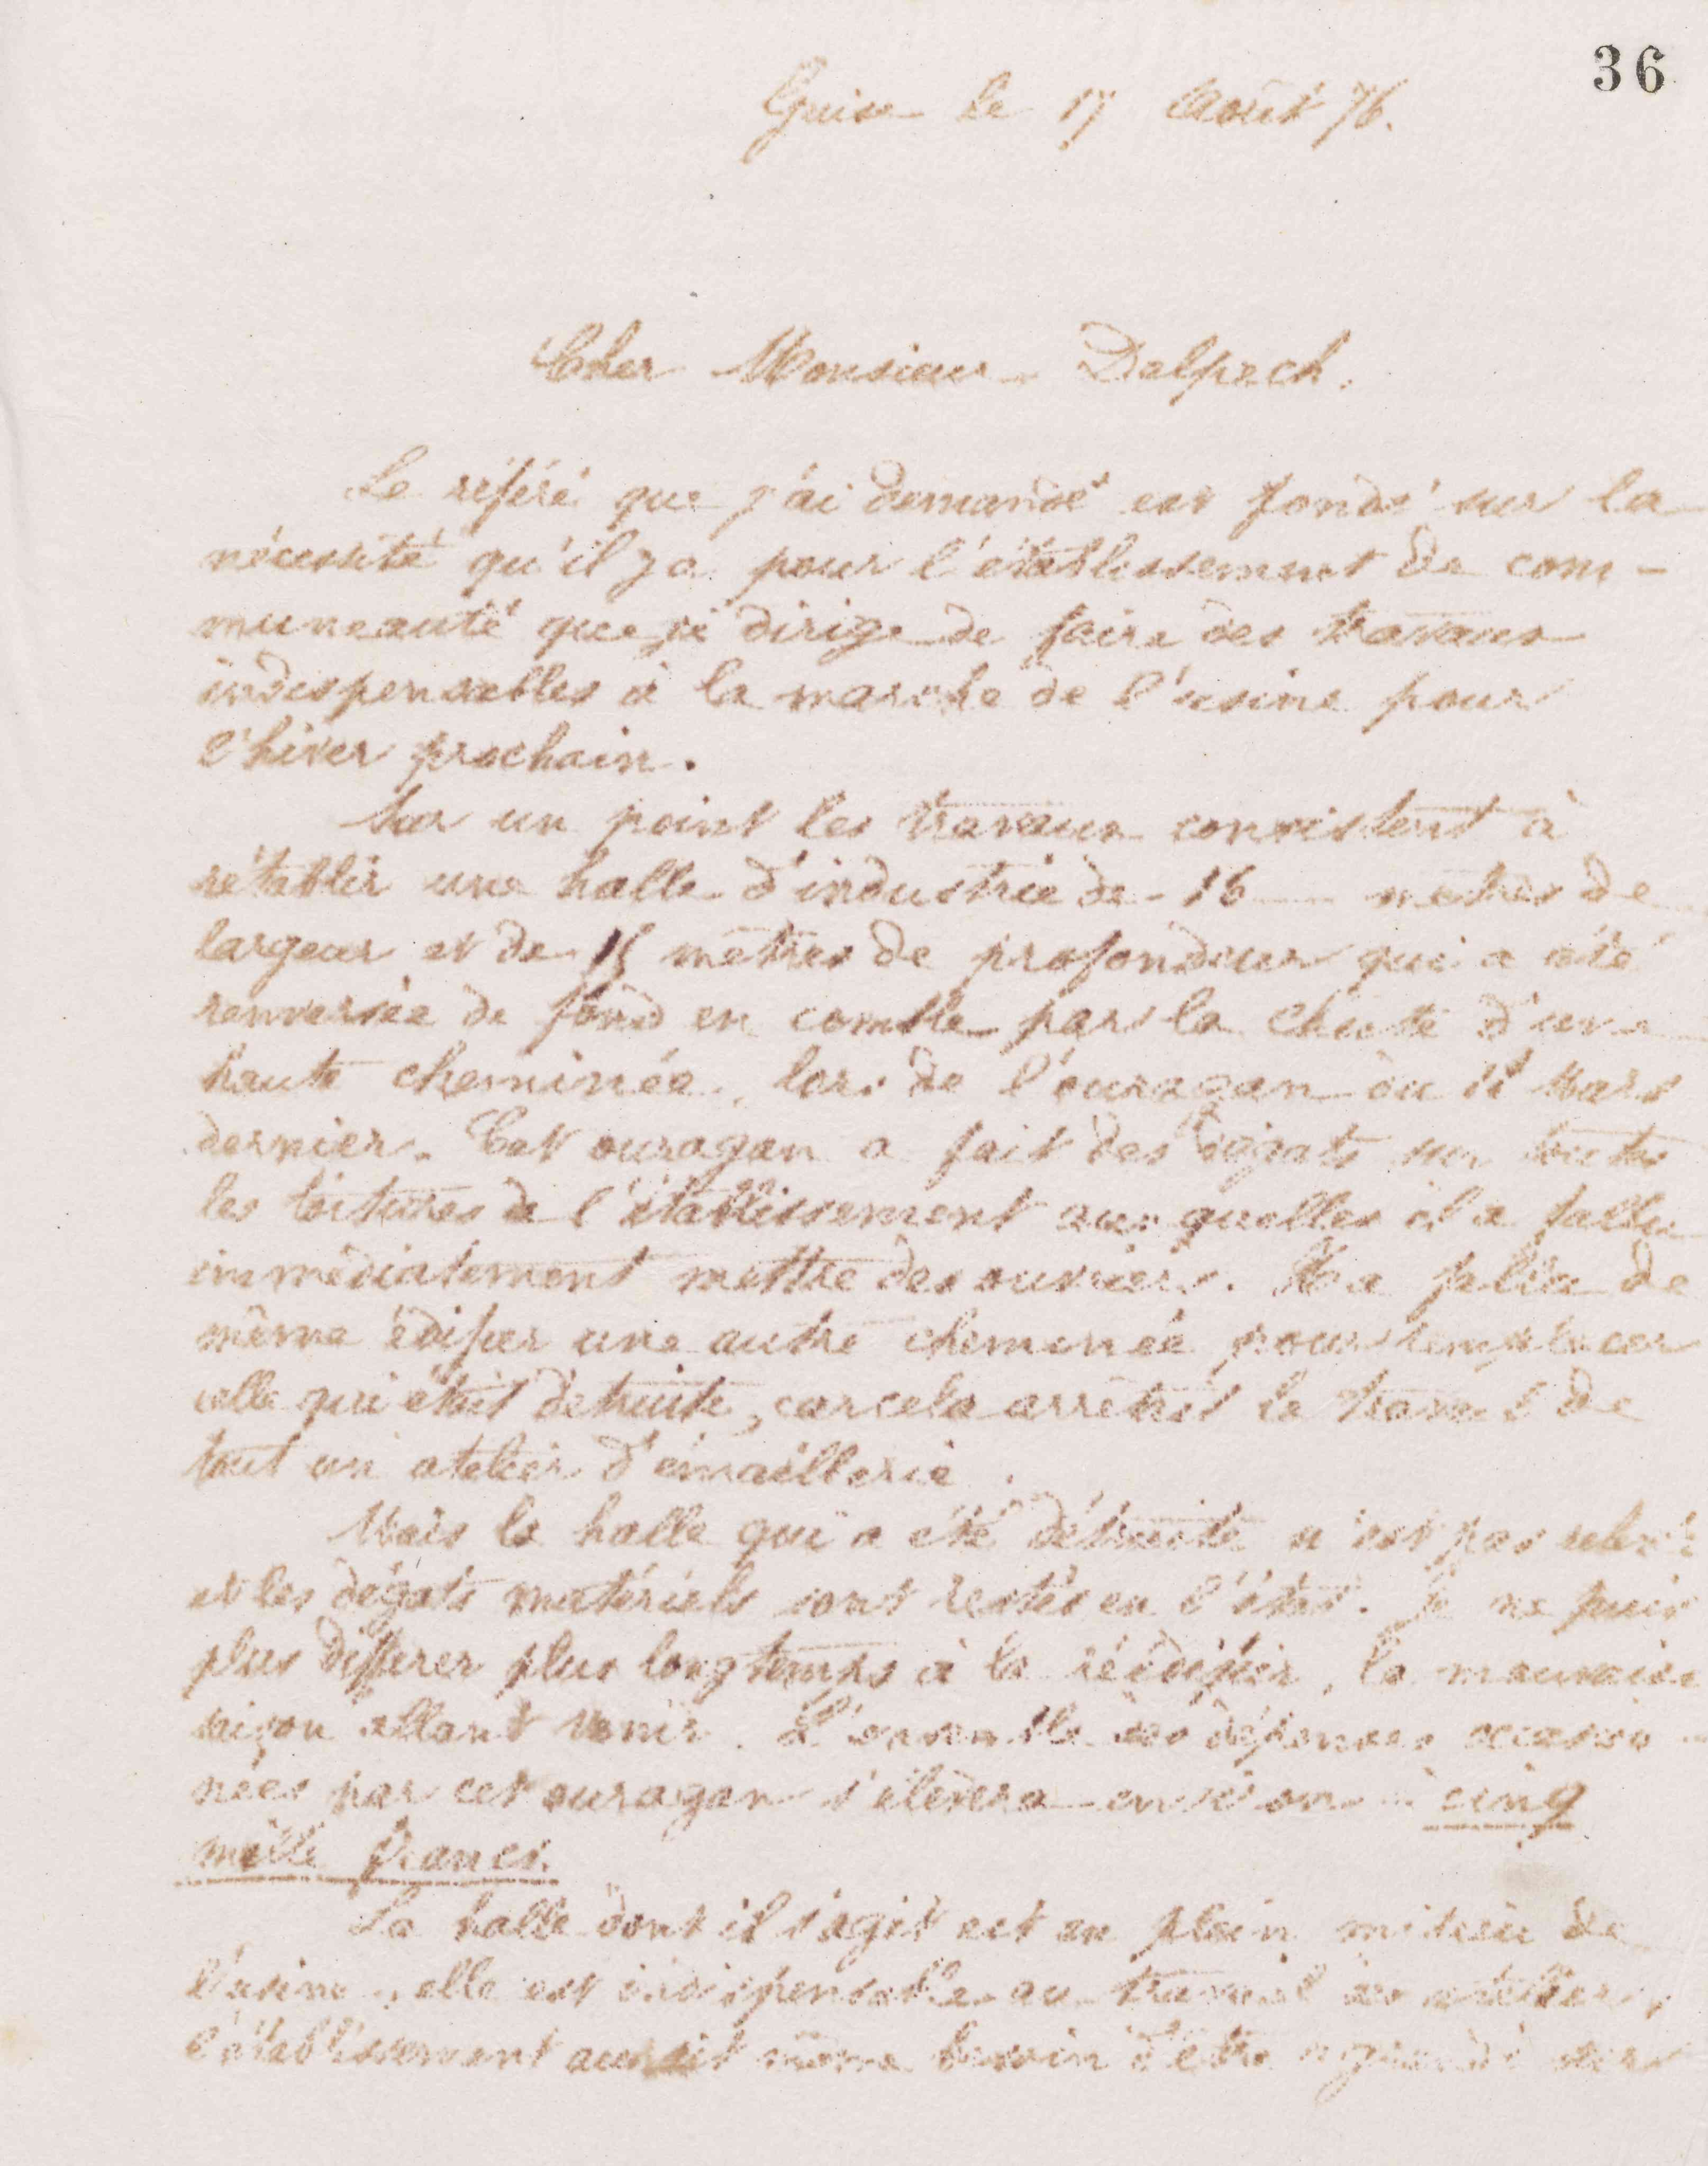 36
Guise le 17 Août 76.
Cher Monsieur Delpech.
Le référé que j'ai demandé est fondé sur la
nécessité qu'il y a pour l'établissement de com-
muneauté que je dirige de faire des travaux
indispensables à la marche de l'usine pour
l'hiver prochain.
Sur un point les travaux consistent à
rétablir une halle d'industrie de 16 mètres de
largeur et de 15 mètres de profondeur qui a été
renversée de fond en comble par la chute d'une
haute cheminée, lors de l'ouragan du Mars
dernier. Cet ouragan a fait des dégats sur toutes
les toitures de l'établissement auxquelles il a fallu
immédiatement mettre des ouvriers. Il a fallu de
même édifier une autre cheminée pour remplacer
celle qui était détruite, car cela arrêtait le travail de
tout un atelier d'émaillerie.
Mais la halle qui a été détruite n'est pas rebatie
et les dégats matériels sont restés en l'état. Je ne puis
plus différer plus longtemps à la réédifier, la mauvaise
saison allant venir. L'ensemble des dépenses occasio-
nées par cet ouragan s'élèvera environ à cinq
mille francs.
La halle dont il s'agit est au plein milieu de
l'usine, elle est indispensable au travail des ateliers,
l'établissement aurait même besoin d'être agrandi